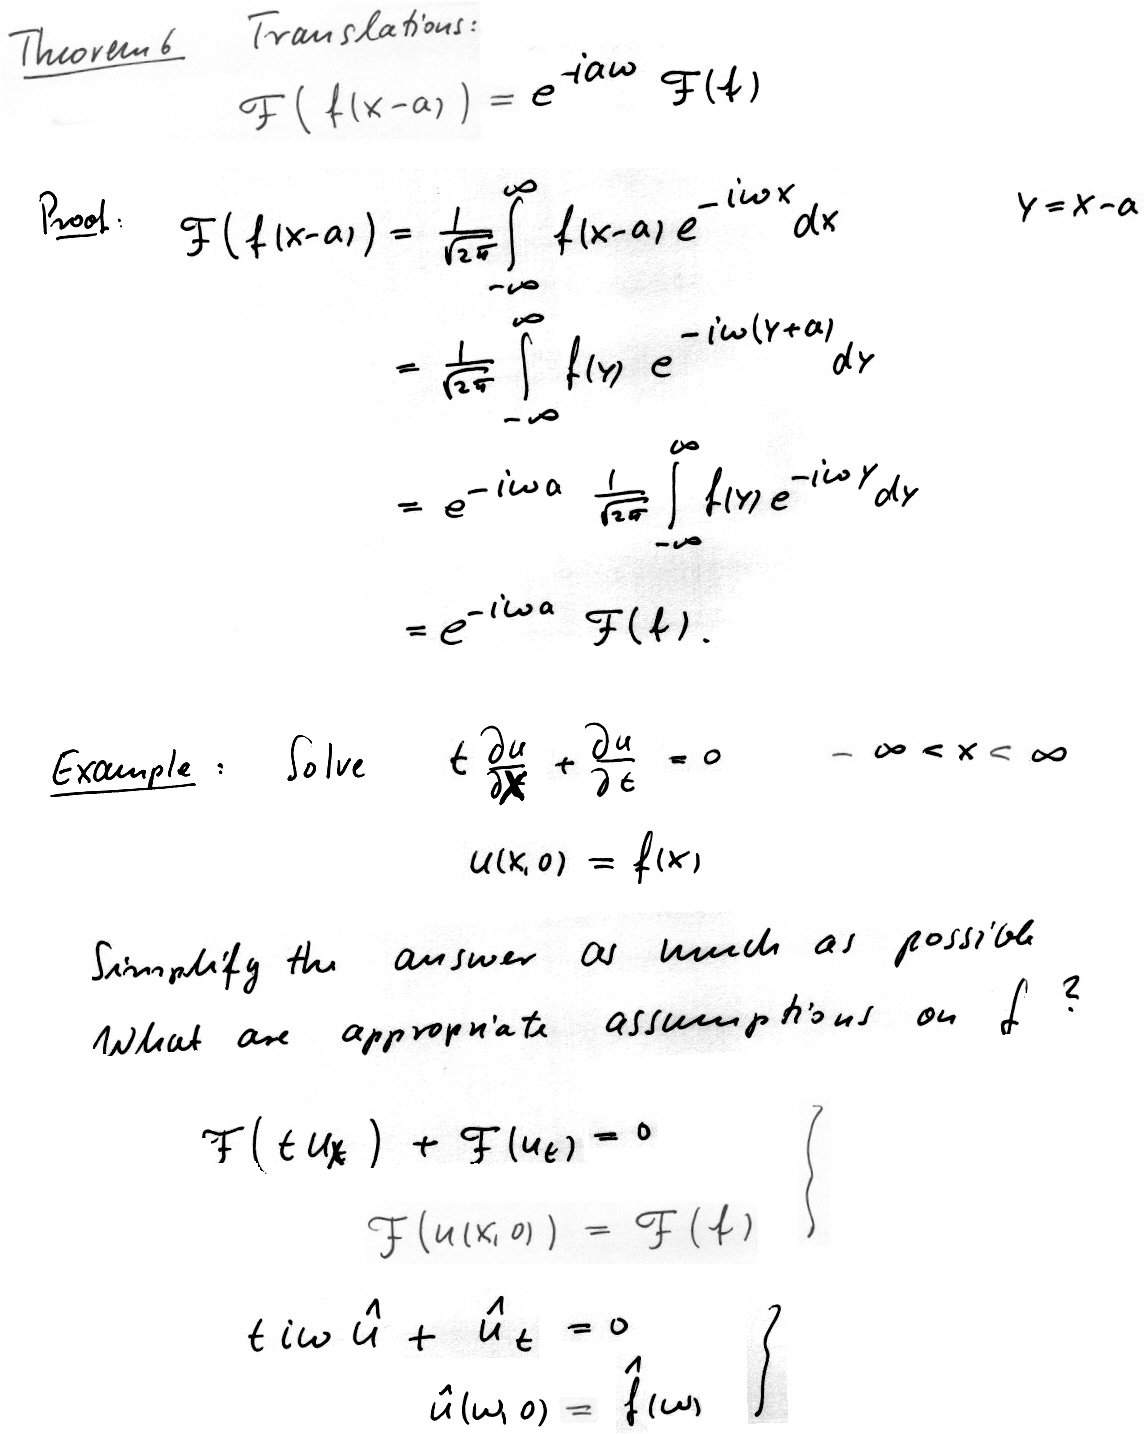 Theorem 6 Translations:
ℱ(f(x-a)) = e^{-iaω} ℱ(f)
Proof: ℱ(f(x-a)) = 1/√2π ∫_{-∞}^{∞} f(x-a) e^{-iωx} dx y = x-a
= 1/√2π ∫_{-∞}^{∞} f(y) e^{-iω(y+a)} dy
= e^{-iωa} 1/√2π ∫_{-∞}^{∞} f(y) e^{-iωy} dy
= e^{-iωa} ℱ(f).
Example: Solve t ∂u/∂x + ∂u/∂t = 0 -∞ < x < ∞
u(x,0) = f(x)
Simplify the answer as much as possible
What are appropriate assumptions on f ?
ℱ(t u_x) + ℱ(u_t) = 0 }
ℱ(u(x,0)) = ℱ(f)
t iω û + û_t = 0 }
û(ω,0) = f̂(ω)